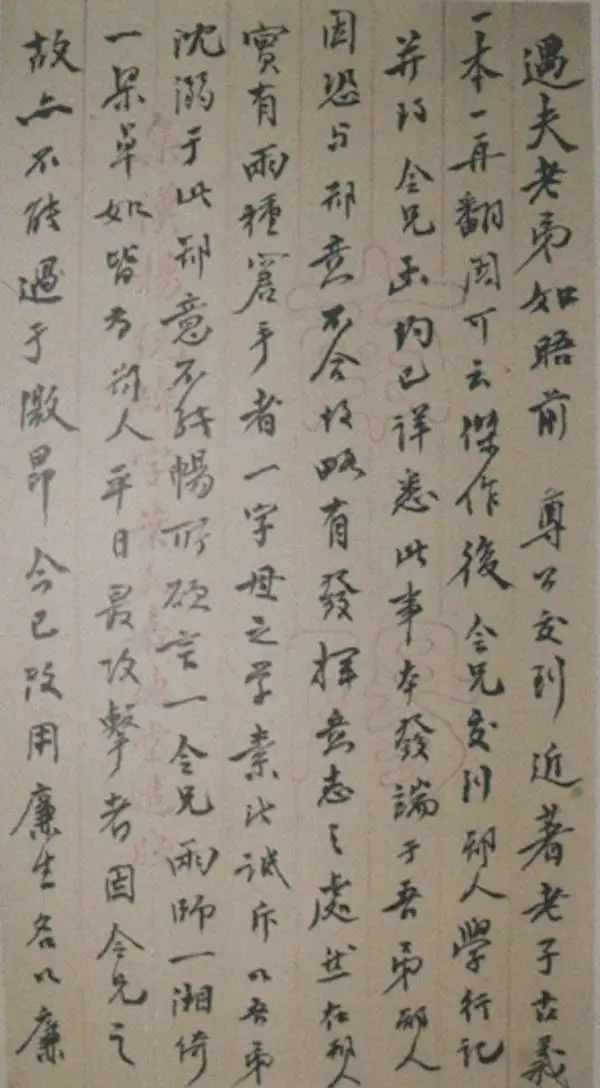 遇夫老弟如晤前　尊公交到　近著老子古義
一本一再翻閱可云傑作後　令兄交到　鄙人學行記
并改　令兄函均已詳悉此事本發端于吾弟鄙人
因恐与鄙意不合故略有發揮意志之處然在鄙人
實有兩種窘乎者一字母之学素所诋斥以吾弟
沈溺于此鄙意不能暢所欲言一令兄兩師一湘綺
一杲卓如皆为前人平日最攻擊者因令兄之
故亦不能過于激昂今已改用廉生名以廉